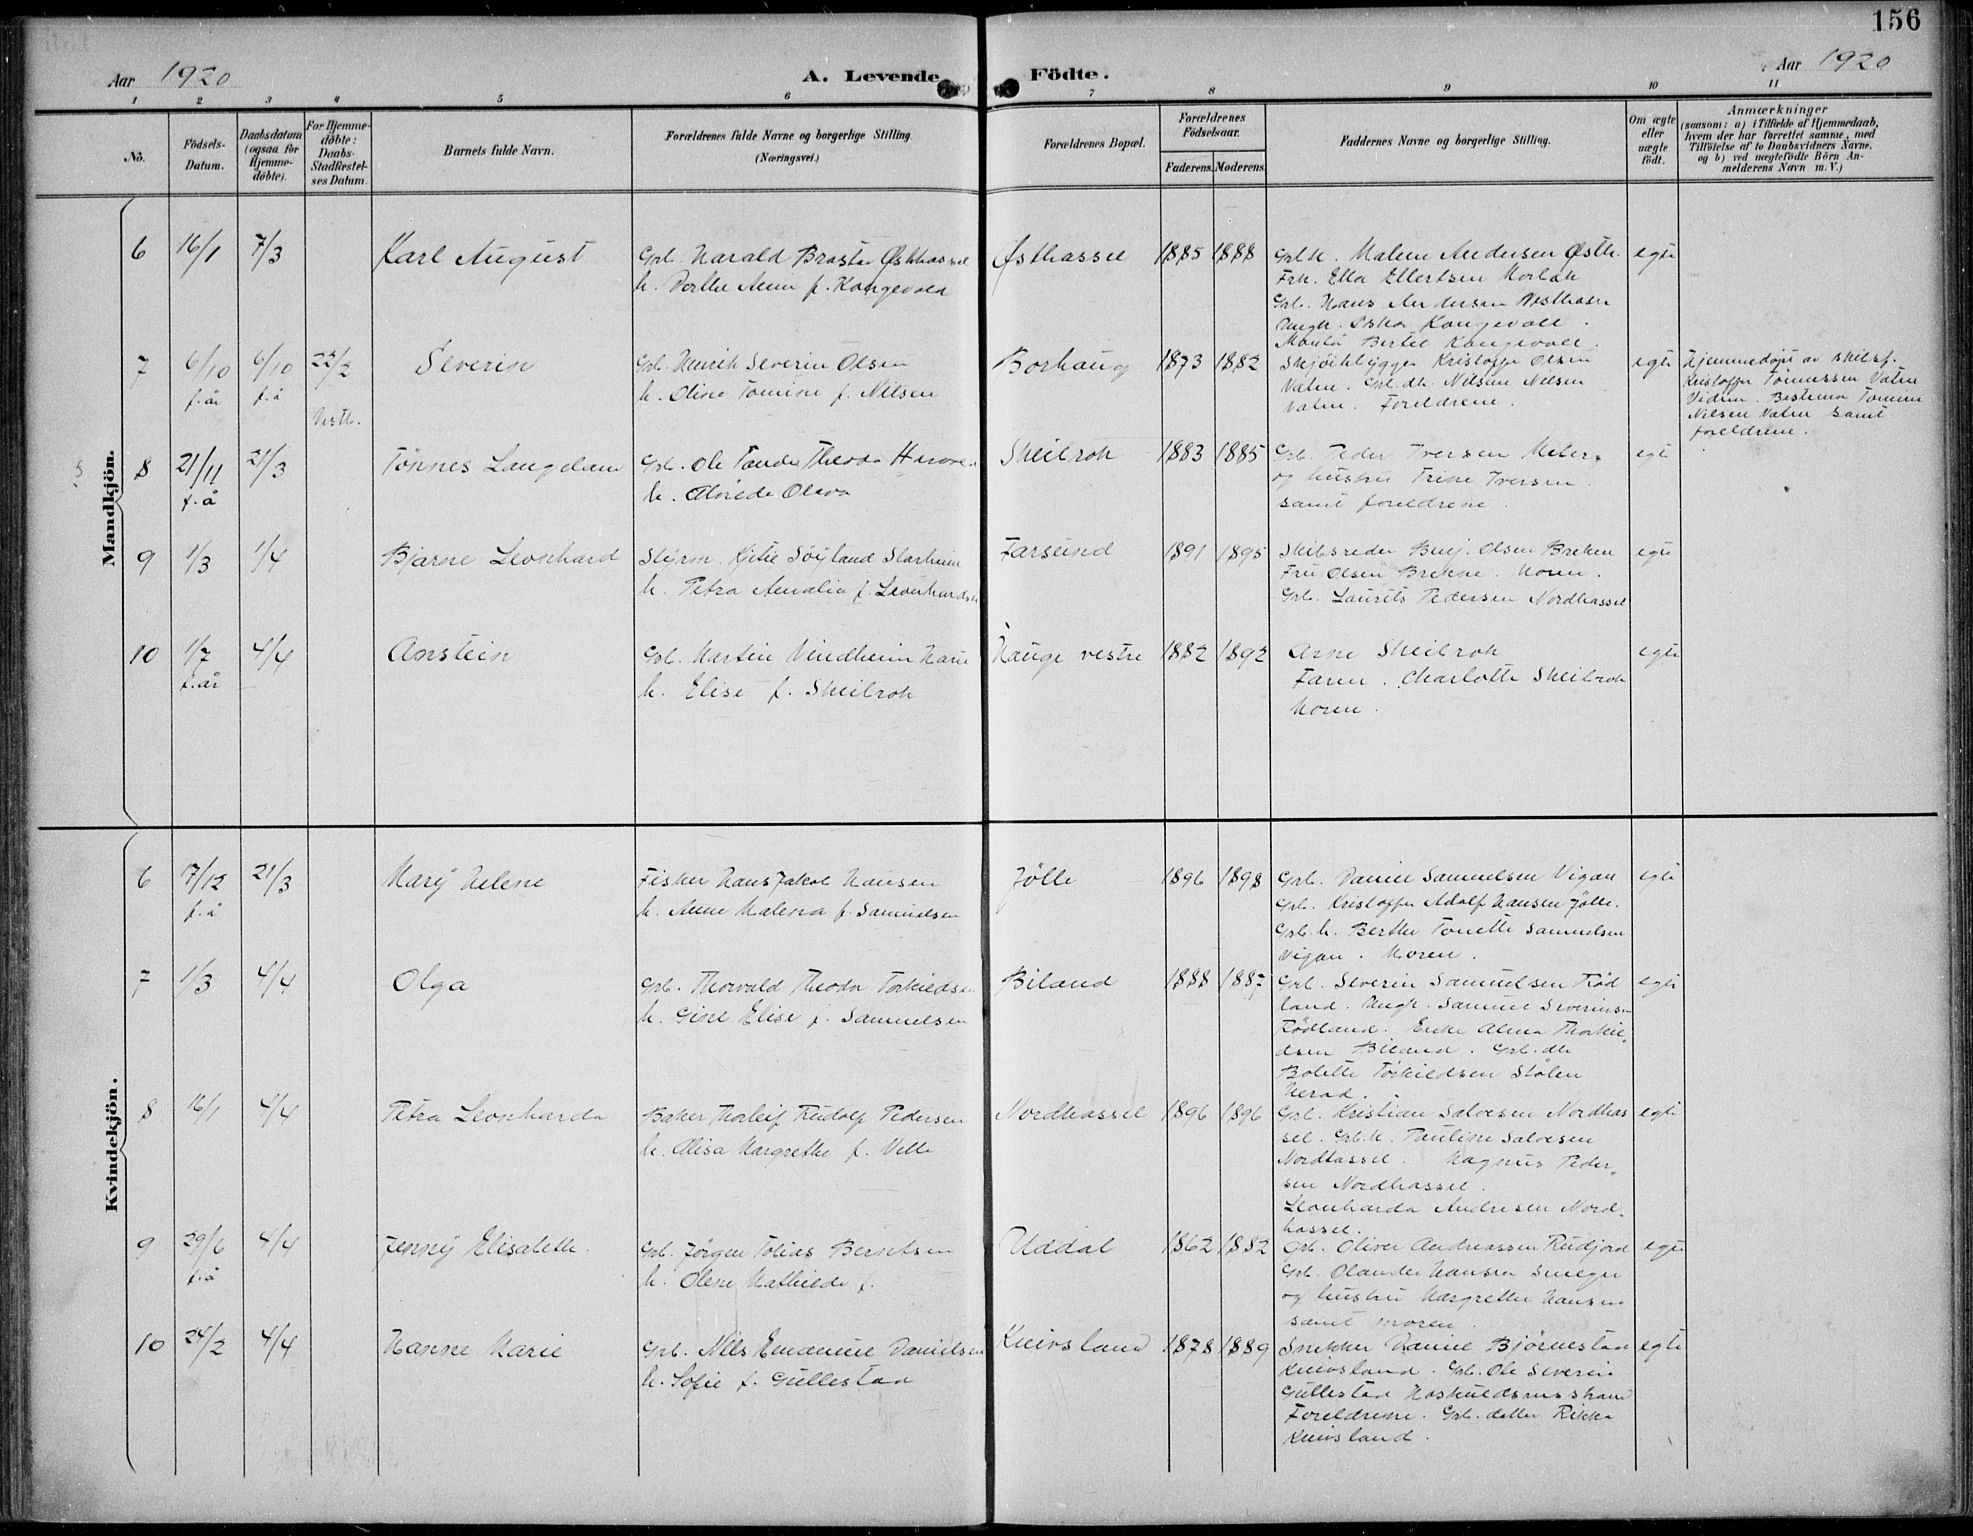 156
Aar 1920
A. Levende Födte.
Aar 1920
1 2 3 4 5 6 7 8 9 10 11
No.
Födsels-Datum.
Daabsdatum (ogsaa for Hjemme-döbte).
For Hjemme-döbte: Daabs-Stadfæstel-ses Datum.
Barnets fulde Navn.
Forældrenes fulde Navne og borgerlige Stilling.
(Næringsvei.)
Forældrenes Bopæl.
Forældrenes Födselsaar.
Faderens. Moderens.
Faddernes Navne og borgerlige Stilling.
Om ægte eller uægte födt.
Anmærkninger
(saasom: a) i Tilfælde af Hjemmedaab,
hvem der har forrettet samme, med
Tilföielse af to Daabsvidners Navne,
og b) ved uægtefödte Börn An-
melderens Navn m. V.)
Mandkjön.
6 16/1 7/3 Karl August
Grb. Harald Brastø Østhassel
h. Dorthe Anna f. Kongevold
Østhassel 1885 1888
Grbk. Malene Andersen Østh.
Frk. Ella Ellertsen
Grb. Hans Andersen Vesthassel
Ungk. Kongevold.
Bertel Kongevold.
egte
7 6/10 f. år 6/10 f. å 22/2 Vestb. Severin
Grb. Henrik Severin Olsen
h. Oline Tomine f. Nilsen
Borhaug 1873 1882
Kristoffer Olsen
Vatne. Grb. dtr. Nilsine Nilsen
Vatne. Foreldrene.
egte
Hjemmedøpt av
Kristoffer Tønnessen Vatne
Vidner. Bestemor Tomine
Nilsen Vatne samt
foreldrene.
8 21/11 f. å 21/3 Tønnes Langeland
Grb. Ole Theodor
h. Alvilde Olava
Skeibrok 1883 1885
Grb. Peder Iversen
og hustru Trine Iversen
samt foreldrene.
egte
9 1/3 1/4 Bjarne Leonhard
Styrm. Kjetil Søyland
h. Petra Amalia f. Leonhardsen
Farsund 1891 1895
Skibsreder Olsen Brekne
Fru Olsen Brekne. Moren.
Grb. Laurits Pedersen Nordhassel
egte
10 1/7 f. år 4/4 Arnstein
Grb. Martin Vindheim
h. Elise f. Skeibrok
Hauge vestre 1882 1892
Arne Skeibrok
Faren. Charlotte Skeibrok
Moren.
egte
Kvindekjön.
6 17/12 f. å 21/3 Mary Helene
Fisker Hans Jakob Hansen
h. Anne Malena f. Samuelsen
Jølle 1896 1898
Grb. Daniel Samuelsen Vigan
Grb. Kristoffer Adolf Hansen Jølle.
Grb. h. Berthe Tonette Samuelsen
Vigan. Moren.
egte
7 1/3 4/4 Olga
Grb. Thorvald Theodor Torkildsen
h. Gine Elise f. Samuelsen
Biland 1888 1887
Grb. Severin Samuelsen Rød
land. Ungk. Samuel Severinsen
Rødland. Enke Alma Thorkil-
dsen Biland. Grb. dtr
Bolette Torkildsen Stølen
Herad.
egte
8 16/1 4/4 Petra Leonharda
Baker Thorleif Rudolf Pedersen
h. Alisa Margrethe f. Velle
Nordhassel 1896 1896
Grb. Kristian Salvesen Nordhas
sel. Grb. h. Pauline Salvesen
Nordhassel. Magnus Peder-
sen Nordhassel.
Leonharda Andresen Nord-
hassel.
egte
9 29/6 f. å 4/4 Jenny Elisabeth.
Grb. Jørgen Tobias Berntsen
h. Olene Mathilde f.
Uddal 1862 1882
Grb. Oliver Andreassen Rudjord
Grb. Olander Hansen
og hustru Margrethe Hansen
samt moren.
egte
10 24/2 4/4 Hanne Marie
Grb. Nils Emanuel Danielsen
h. Sofie f. Gullestad
Kleivsland 1878 1889
Snekker Daniel Bjørnestad
Kleivsland. Grb. Ole Severin
Gullestad
Foreldrene. Grb. datter Rikka
Kleivsland.
egte